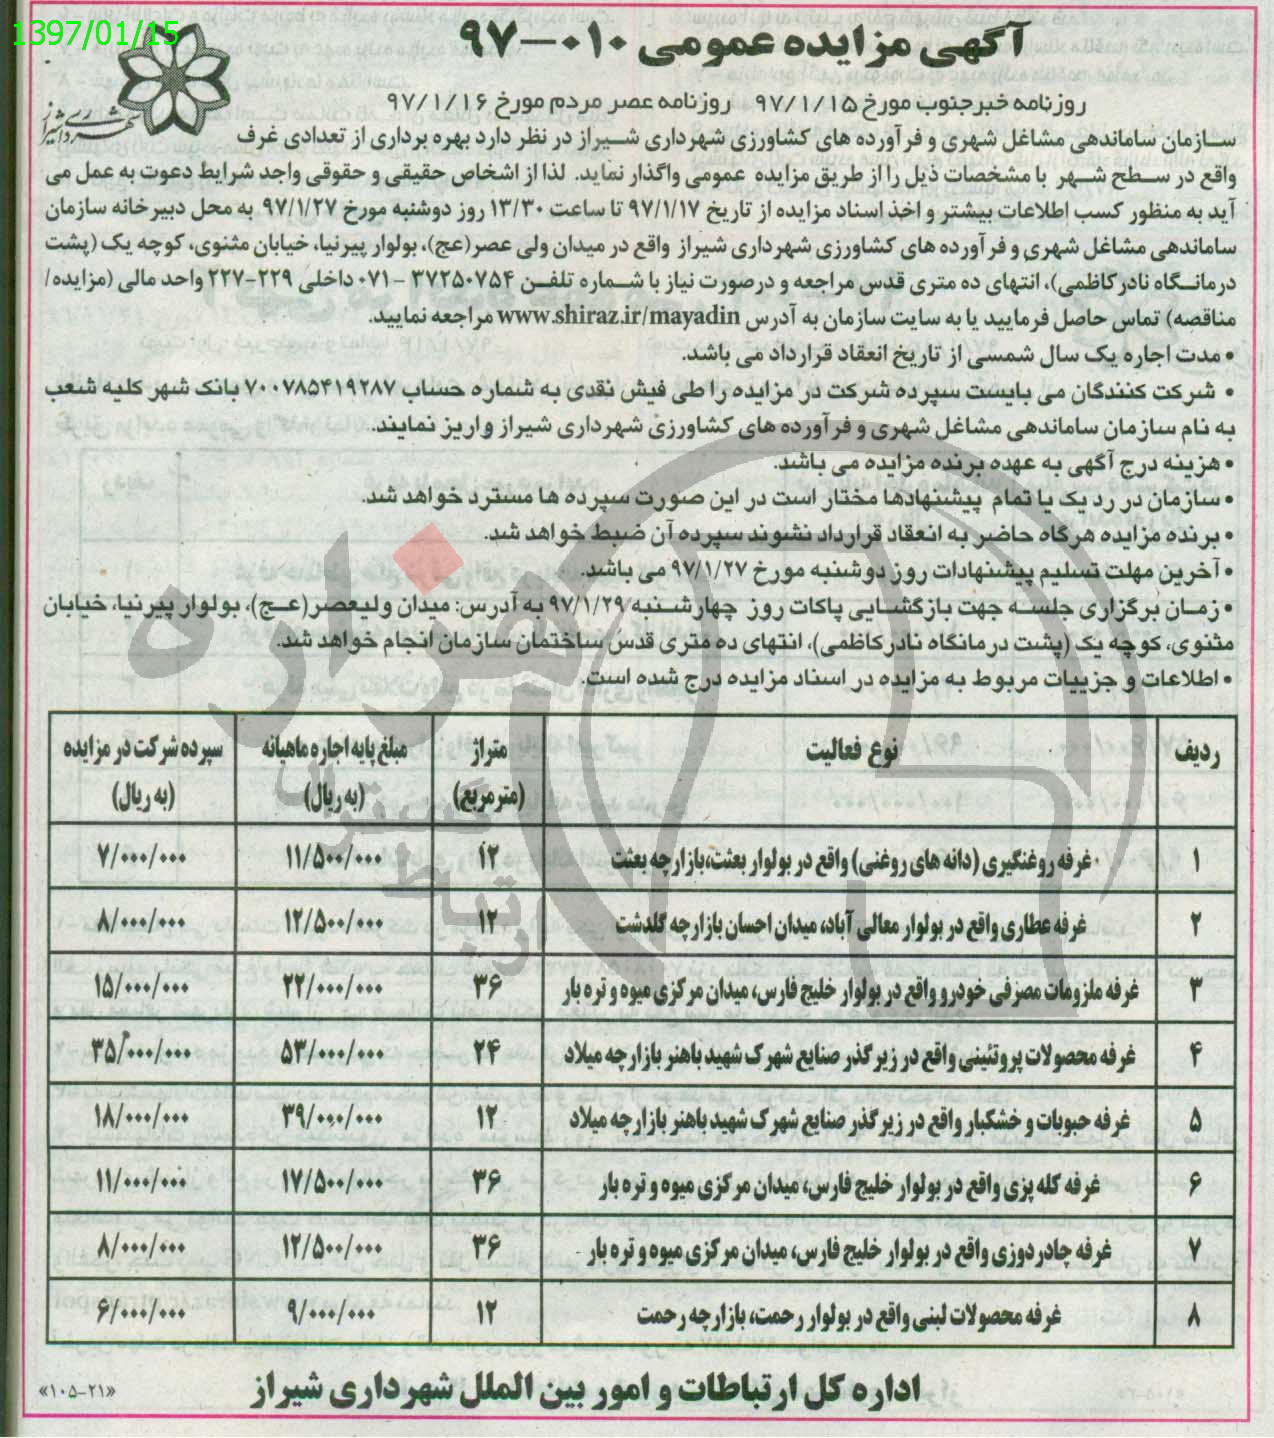 1397/01/15
آگهی مزایده عمومی ۰۱۰-۹۷
شهرداری شیراز
روزنامه خبرجنوب مورخ ۹۷/۱/۱۵ روزنامه عصر مردم مورخ ۹۷/۱/۱۶
سازمان ساماندهی مشاغل شهری و فرآورده های کشاورزی شهرداری شیراز در نظر دارد بهره برداری از تعدادی غرف
واقع در سطح شهر با مشخصات ذیل را از طریق مزایده عمومی واگذار نماید. لذا از اشخاص حقیقی و حقوقی واجد شرایط دعوت به عمل می
آید به منظور کسب اطلاعات بیشتر و اخذ اسناد مزایده از تاریخ ۹۷/۱/۱۷ تا ساعت ۱۳/۳۰ روز دوشنبه مورخ ۹۷/۱/۲۷ به محل دبیرخانه سازمان
ساماندهی مشاغل شهری و فرآورده های کشاورزی شهرداری شیراز واقع در میدان ولی عصر(عج)، بولوار پیرنیا، خیابان مثنوی، کوچه یک (پشت
درمانگاه نادرکاظمی)، انتهای ده متری قدس مراجعه و درصورت نیاز با شماره تلفن ۳۷۲۵۰۷۵۴ - ۰۷۱ داخلی ۲۲۹-۲۲۷ واحد مالی (مزایده/
مناقصه) تماس حاصل فرمایید یا به سایت سازمان به آدرس www.shiraz.ir/mayadin مراجعه نمایید.
• مدت اجاره یک سال شمسی از تاریخ انعقاد قرارداد می باشد.
• شرکت کنندگان می بایست سپرده شرکت در مزایده را طی فیش نقدی به شماره حساب ۷۰۰۷۸۵۴۱۹۲۸۷ بانک شهر کلیه شعب
به نام سازمان ساماندهی مشاغل شهری و فرآورده های کشاورزی شهرداری شیراز واریز نمایند.
• هزینه درج آگهی به عهده برنده مزایده می باشد.
• سازمان در رد یک یا تمام پیشنهادها مختار است در این صورت سپرده ها مسترد خواهد شد.
• برنده مزایده هرگاه حاضر به انعقاد قرارداد نشوند سپرده آن ضبط خواهد شد.
• آخرین مهلت تسلیم پیشنهادات روز دوشنبه مورخ ۹۷/۱/۲۷ می باشد.
• زمان برگزاری جلسه جهت بازگشایی پاکات روز چهارشنبه ۹۷/۱/۲۹ به آدرس: میدان ولیعصر(عج)، بولوار پیرنیا، خیابان
مثنوی، کوچه یک (پشت درمانگاه نادرکاظمی)، انتهای ده متری قدس ساختمان سازمان انجام خواهد شد.
• اطلاعات و جزییات مربوط به مزایده در اسناد مزایده درج شده است.
ردیف نوع فعالیت متراژ (مترمربع) مبلغ پایه اجاره ماهیانه (به ریال) سپرده شرکت در مزایده (به ریال)
۱ غرفه روغنگیری (دانه های روغنی) واقع در بولوار بعثت،بازارچه بعثت ۱۲ ۱۱/۵۰۰/۰۰۰ ۷/۰۰۰/۰۰۰
۲ غرفه عطاری واقع در بولوار معالی آباد، میدان احسان بازارچه گلدشت ۱۲ ۱۲/۵۰۰/۰۰۰ ۸/۰۰۰/۰۰۰
۳ غرفه ملزومات مصرفی خودرو واقع در بولوار خلیج فارس، میدان مرکزی میوه و تره بار ۳۶ ۲۲/۰۰۰/۰۰۰ ۱۵/۰۰۰/۰۰۰
۴ غرفه محصولات پروتئینی واقع در زیرگذر صنایع شهرک شهید باهنر بازارچه میلاد ۲۴ ۵۳/۰۰۰/۰۰۰ ۳۵/۰۰۰/۰۰۰
۵ غرفه حبوبات و خشکبار واقع در زیرگذر صنایع شهرک شهید باهنر بازارچه میلاد ۱۲ ۳۹/۰۰۰/۰۰۰ ۱۸/۰۰۰/۰۰۰
۶ غرفه کله پزی واقع در بولوار خلیج فارس، میدان مرکزی میوه و تره بار ۳۶ ۱۷/۵۰۰/۰۰۰ ۱۱/۰۰۰/۰۰۰
۷ غرفه چادردوزی واقع در بولوار خلیج فارس، میدان مرکزی میوه و تره بار ۳۶ ۱۲/۵۰۰/۰۰۰ ۸/۰۰۰/۰۰۰
۸ غرفه محصولات لبنی واقع در بولوار رحمت، بازارچه رحمت ۱۲ ۹/۰۰۰/۰۰۰ ۶/۰۰۰/۰۰۰
اداره کل ارتباطات و امور بین الملل شهرداری شیراز
«۱۰۵-۲۱»